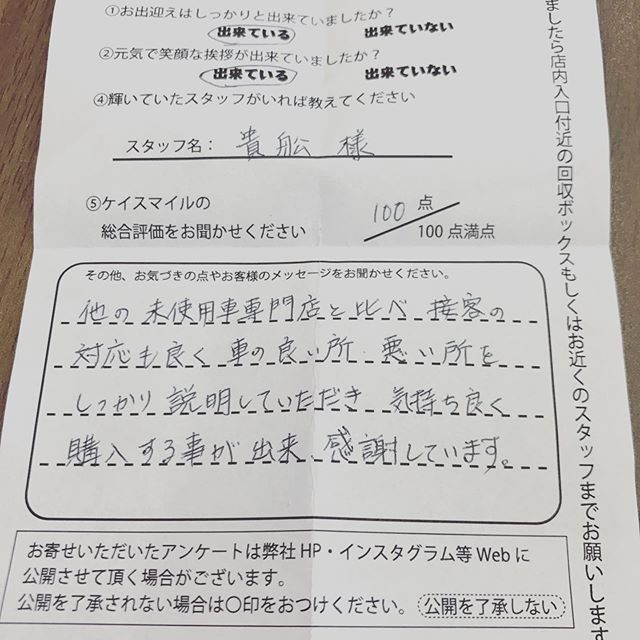 ①お出迎えはしっかりと出来ていましたか？
出来ている 出来ていない
②元気で笑顔な挨拶が出来ていましたか？
出来ている 出来ていない
④輝いていたスタッフがいれば教えてください
スタッフ名： 貴船 様
⑤ケイスマイルの
総合評価をお聞かせください
100 点
100 点満点
その他、お気づきの点やお客様のメッセージをお聞かせください。
他の 未使用車専門店と比べ 接客の
対応も良く 車の良い所 悪い所を
しっかり 説明していただき 気持ち良く
購入する事が出来 感謝しています。
お寄せいただいたアンケートは弊社 HP・インスタグラム等 Web に
公開させて頂く場合がございます。
公開を了承されない場合は〇印をおつけください。 公開を了承しない
ましたら店内入口付近の回収ボックスもしくはお近くのスタッフまでお願いします